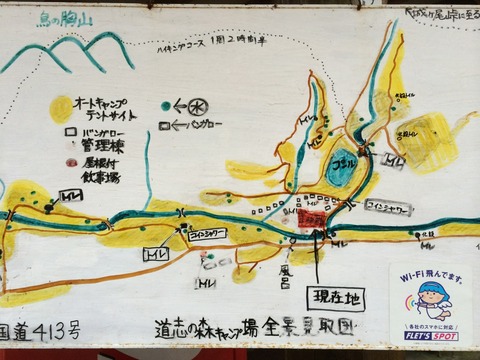 鳥の胸山
ハイキングコース 1周2時間半
オートキャンプ
テントサイト
バンガロー
管理棟
屋根付
炊事場
水
バンガロー
プール
トイレ
トイレ
トイレ
コインシャワー
トイレ
コインシャワー
トイレ
トイレ
トイレ
風呂
現在地
国道413号
道志の森キャンプ場全景見取図
Wi-Fi飛んでます。
各社のスマホに対応
FLET'S SPOT